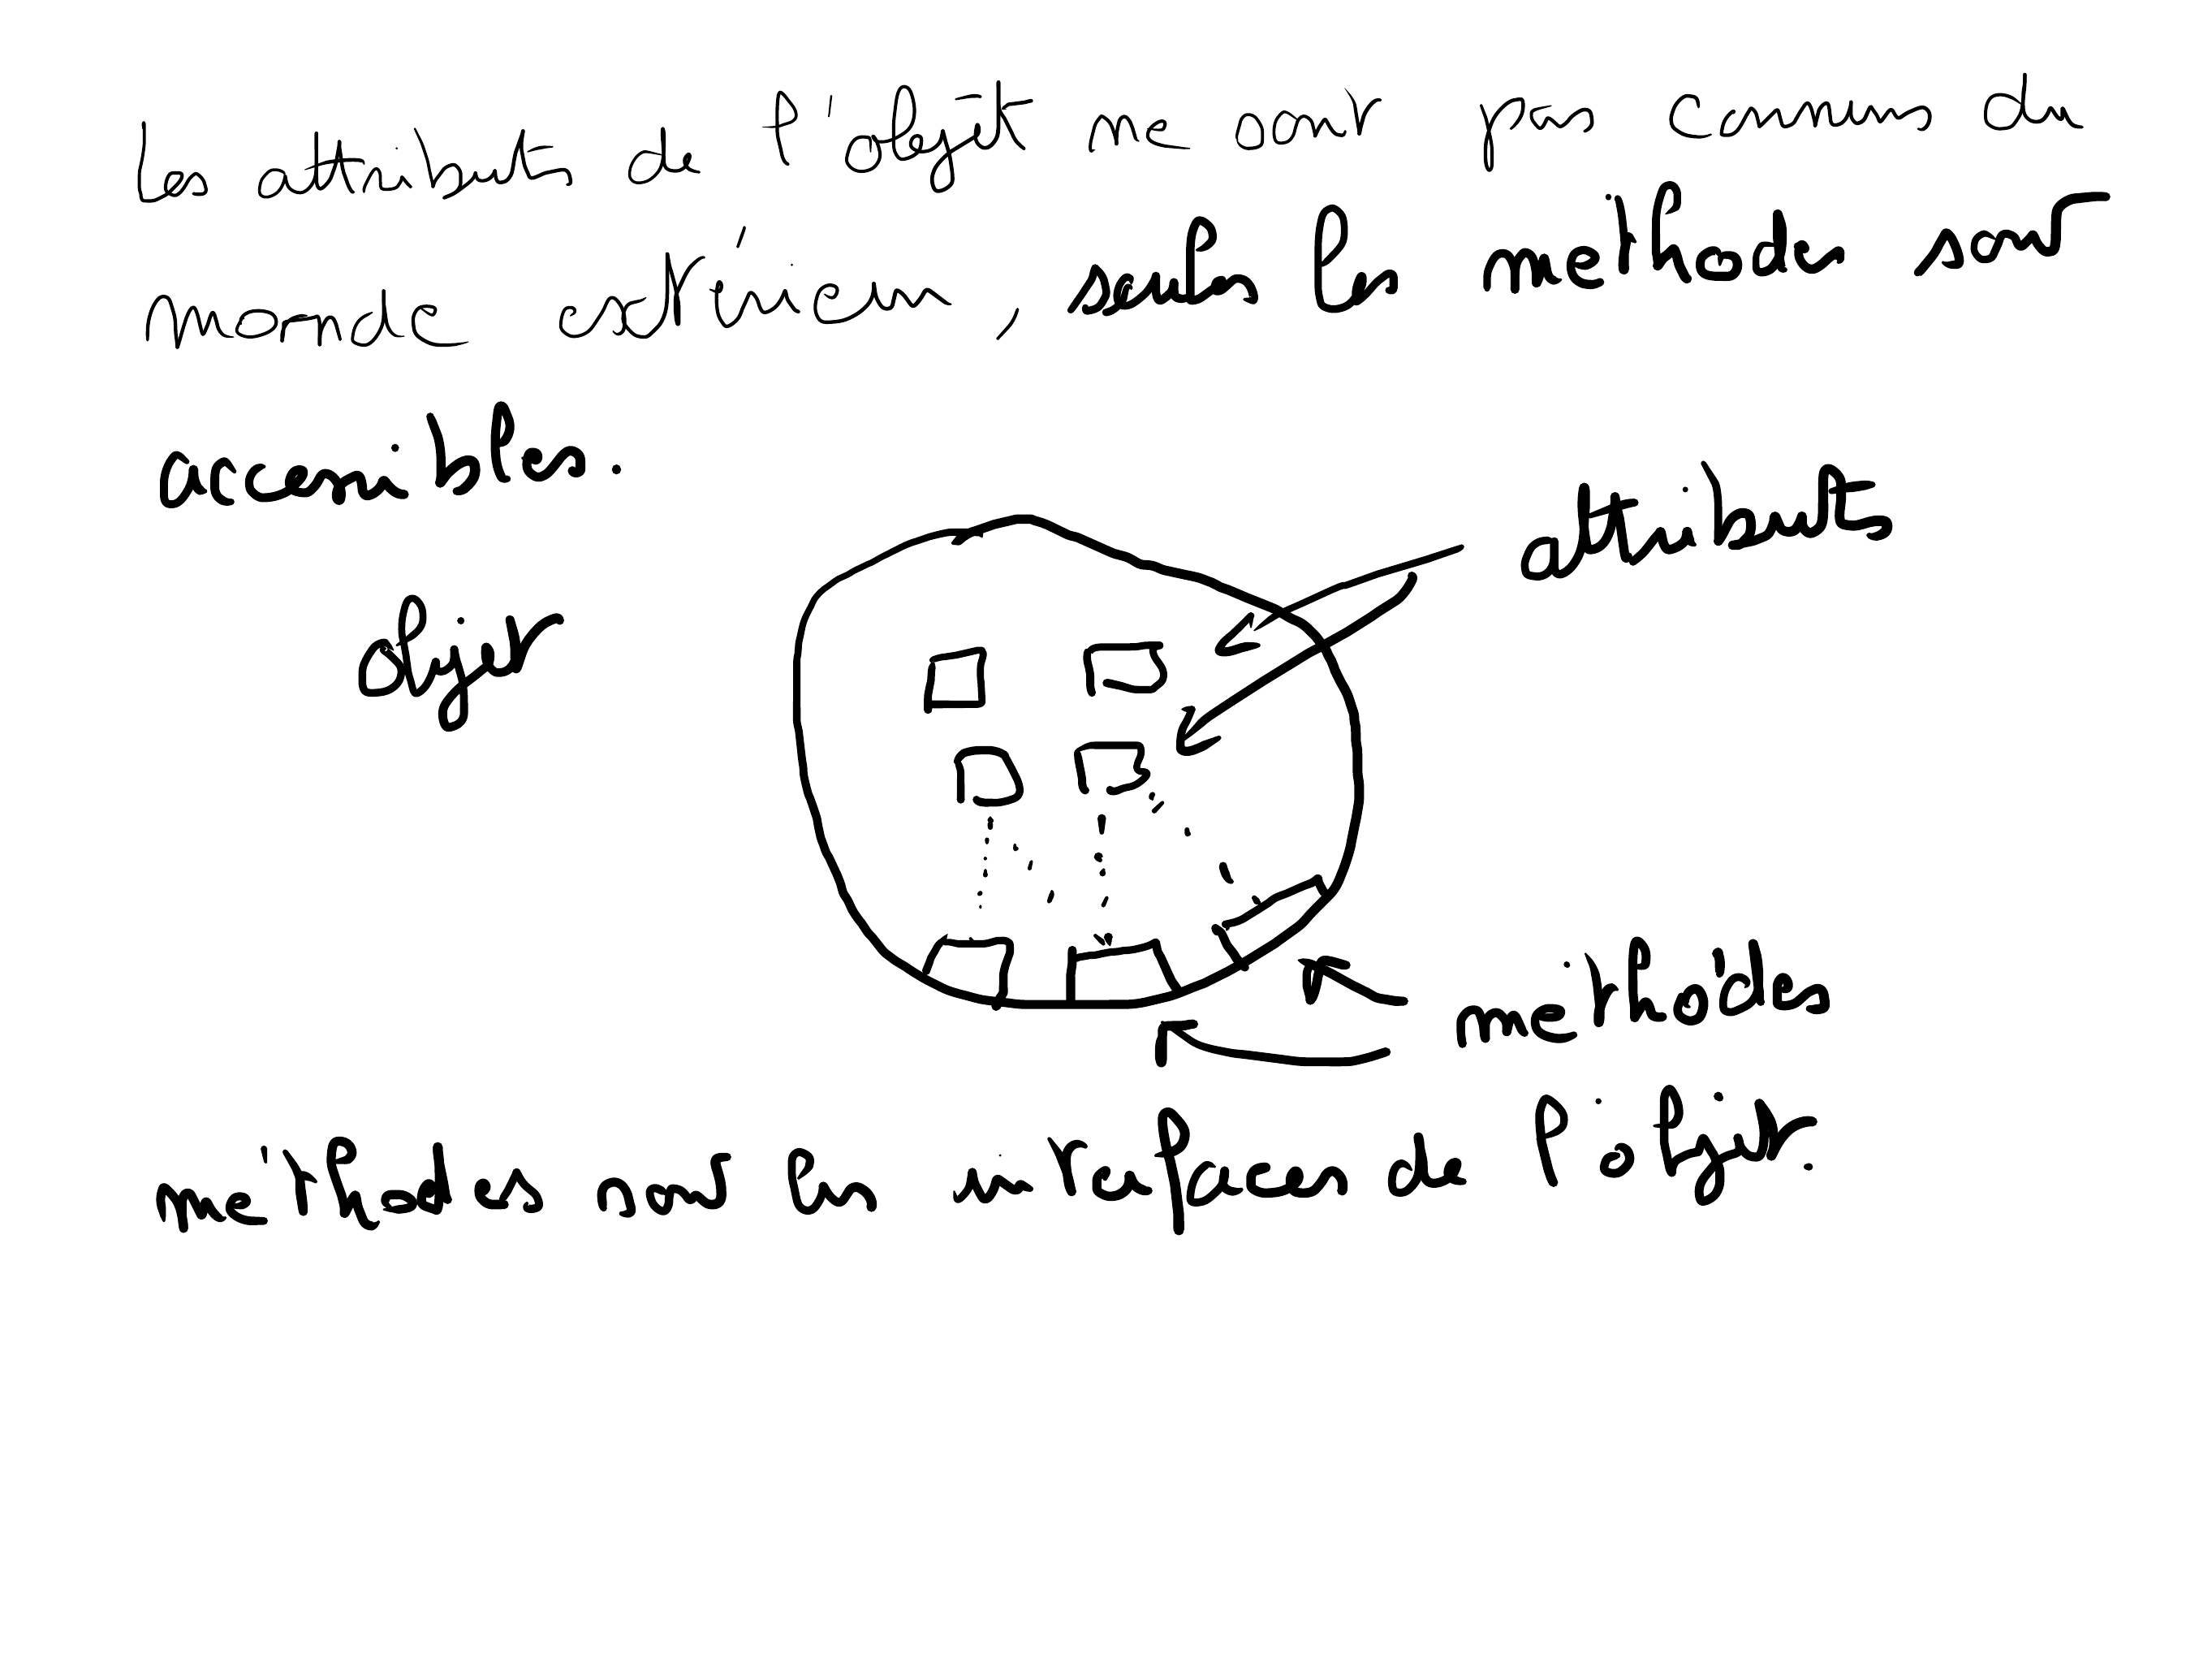 les attributs de l'objet ne sont pas connus du
monde extérieur, seules les méthodes sont
accessibles.
attributs
objet
méthodes
méthodes sont les interfaces de l'objet.